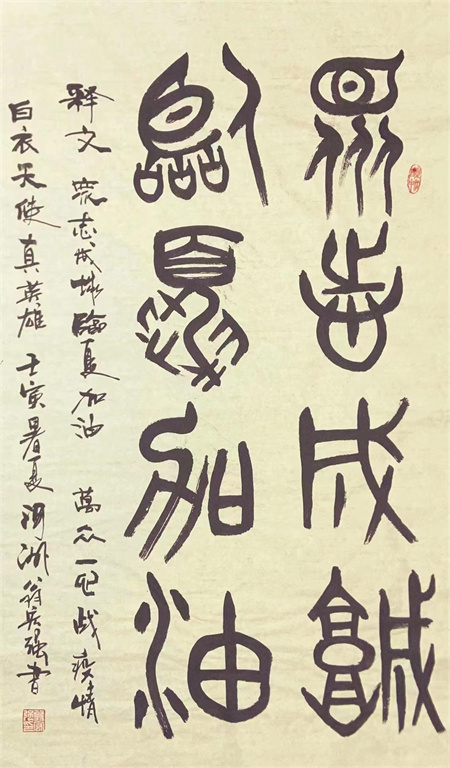 眾志成城
臨夏加油
釋文 眾志成城臨夏加油 萬众一心战疫情
白衣天使真英雄 壬寅暑夏 河湖翁兵强書